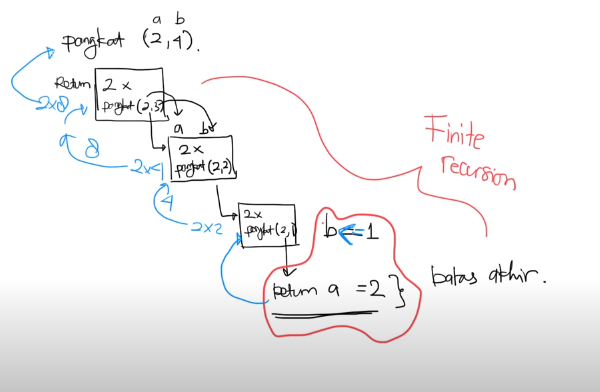 a b
pangkat (2,4).
Return
2 x
pangkat (2,3)
2x8
a b
8
2 x
pangkat (2,2)
2x4
4
2x
pangkat (2,1)
2x2
b == 1
return a = 2 }
batas akhir.
Finite
recursion